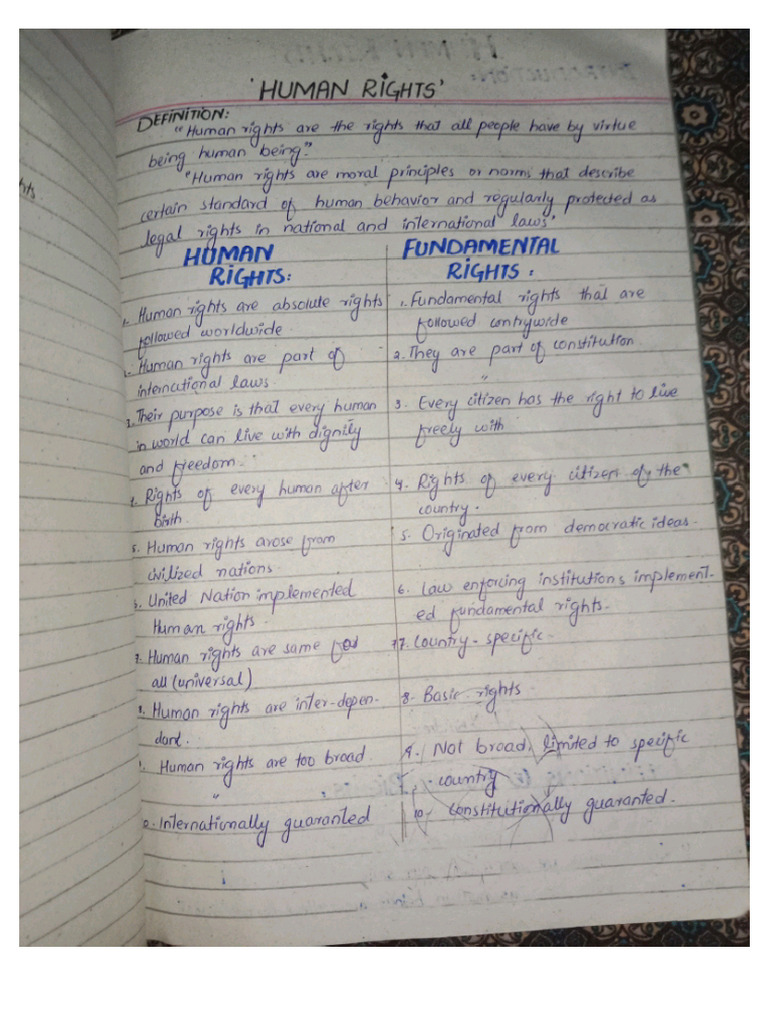 'HUMAN RIGHTS'
DEFINITION:
"Human rights are the rights that all people have by virtue
being human being."
"Human rights are moral principles or norms that describe
certain standard of human behavior and regularly protected as
legal rights in national and international laws"
HUMAN
RIGHTS:
1. Human rights are absolute rights
followed worldwide.
2. Human rights are part of
international laws.
3. Their purpose is that every human
in world can live with dignity
and freedom.
4. Rights of every human after
birth.
5. Human rights arose from
civilized nations.
6. United Nation implemented
Human rights.
7. Human rights are same for
all (universal)
8. Human rights are inter-depen-
dant.
9. Human rights are too broad.
"
10. Internationally guaranted
FUNDAMENTAL
RIGHTS:
1. Fundamental rights that are
followed contrywide
2. They are part of constitution.
"
3. Every citizen has the right to live
freely with
4. Rights of every citizen of the
country.
5. Originated from democratic ideas.
6. Law enforcing institutions implement-
ed fundamental rights.
7. Country-specific.
8. Basic rights.
9. Not broad, limited to specific
country
10. Constitutionally guaranted.